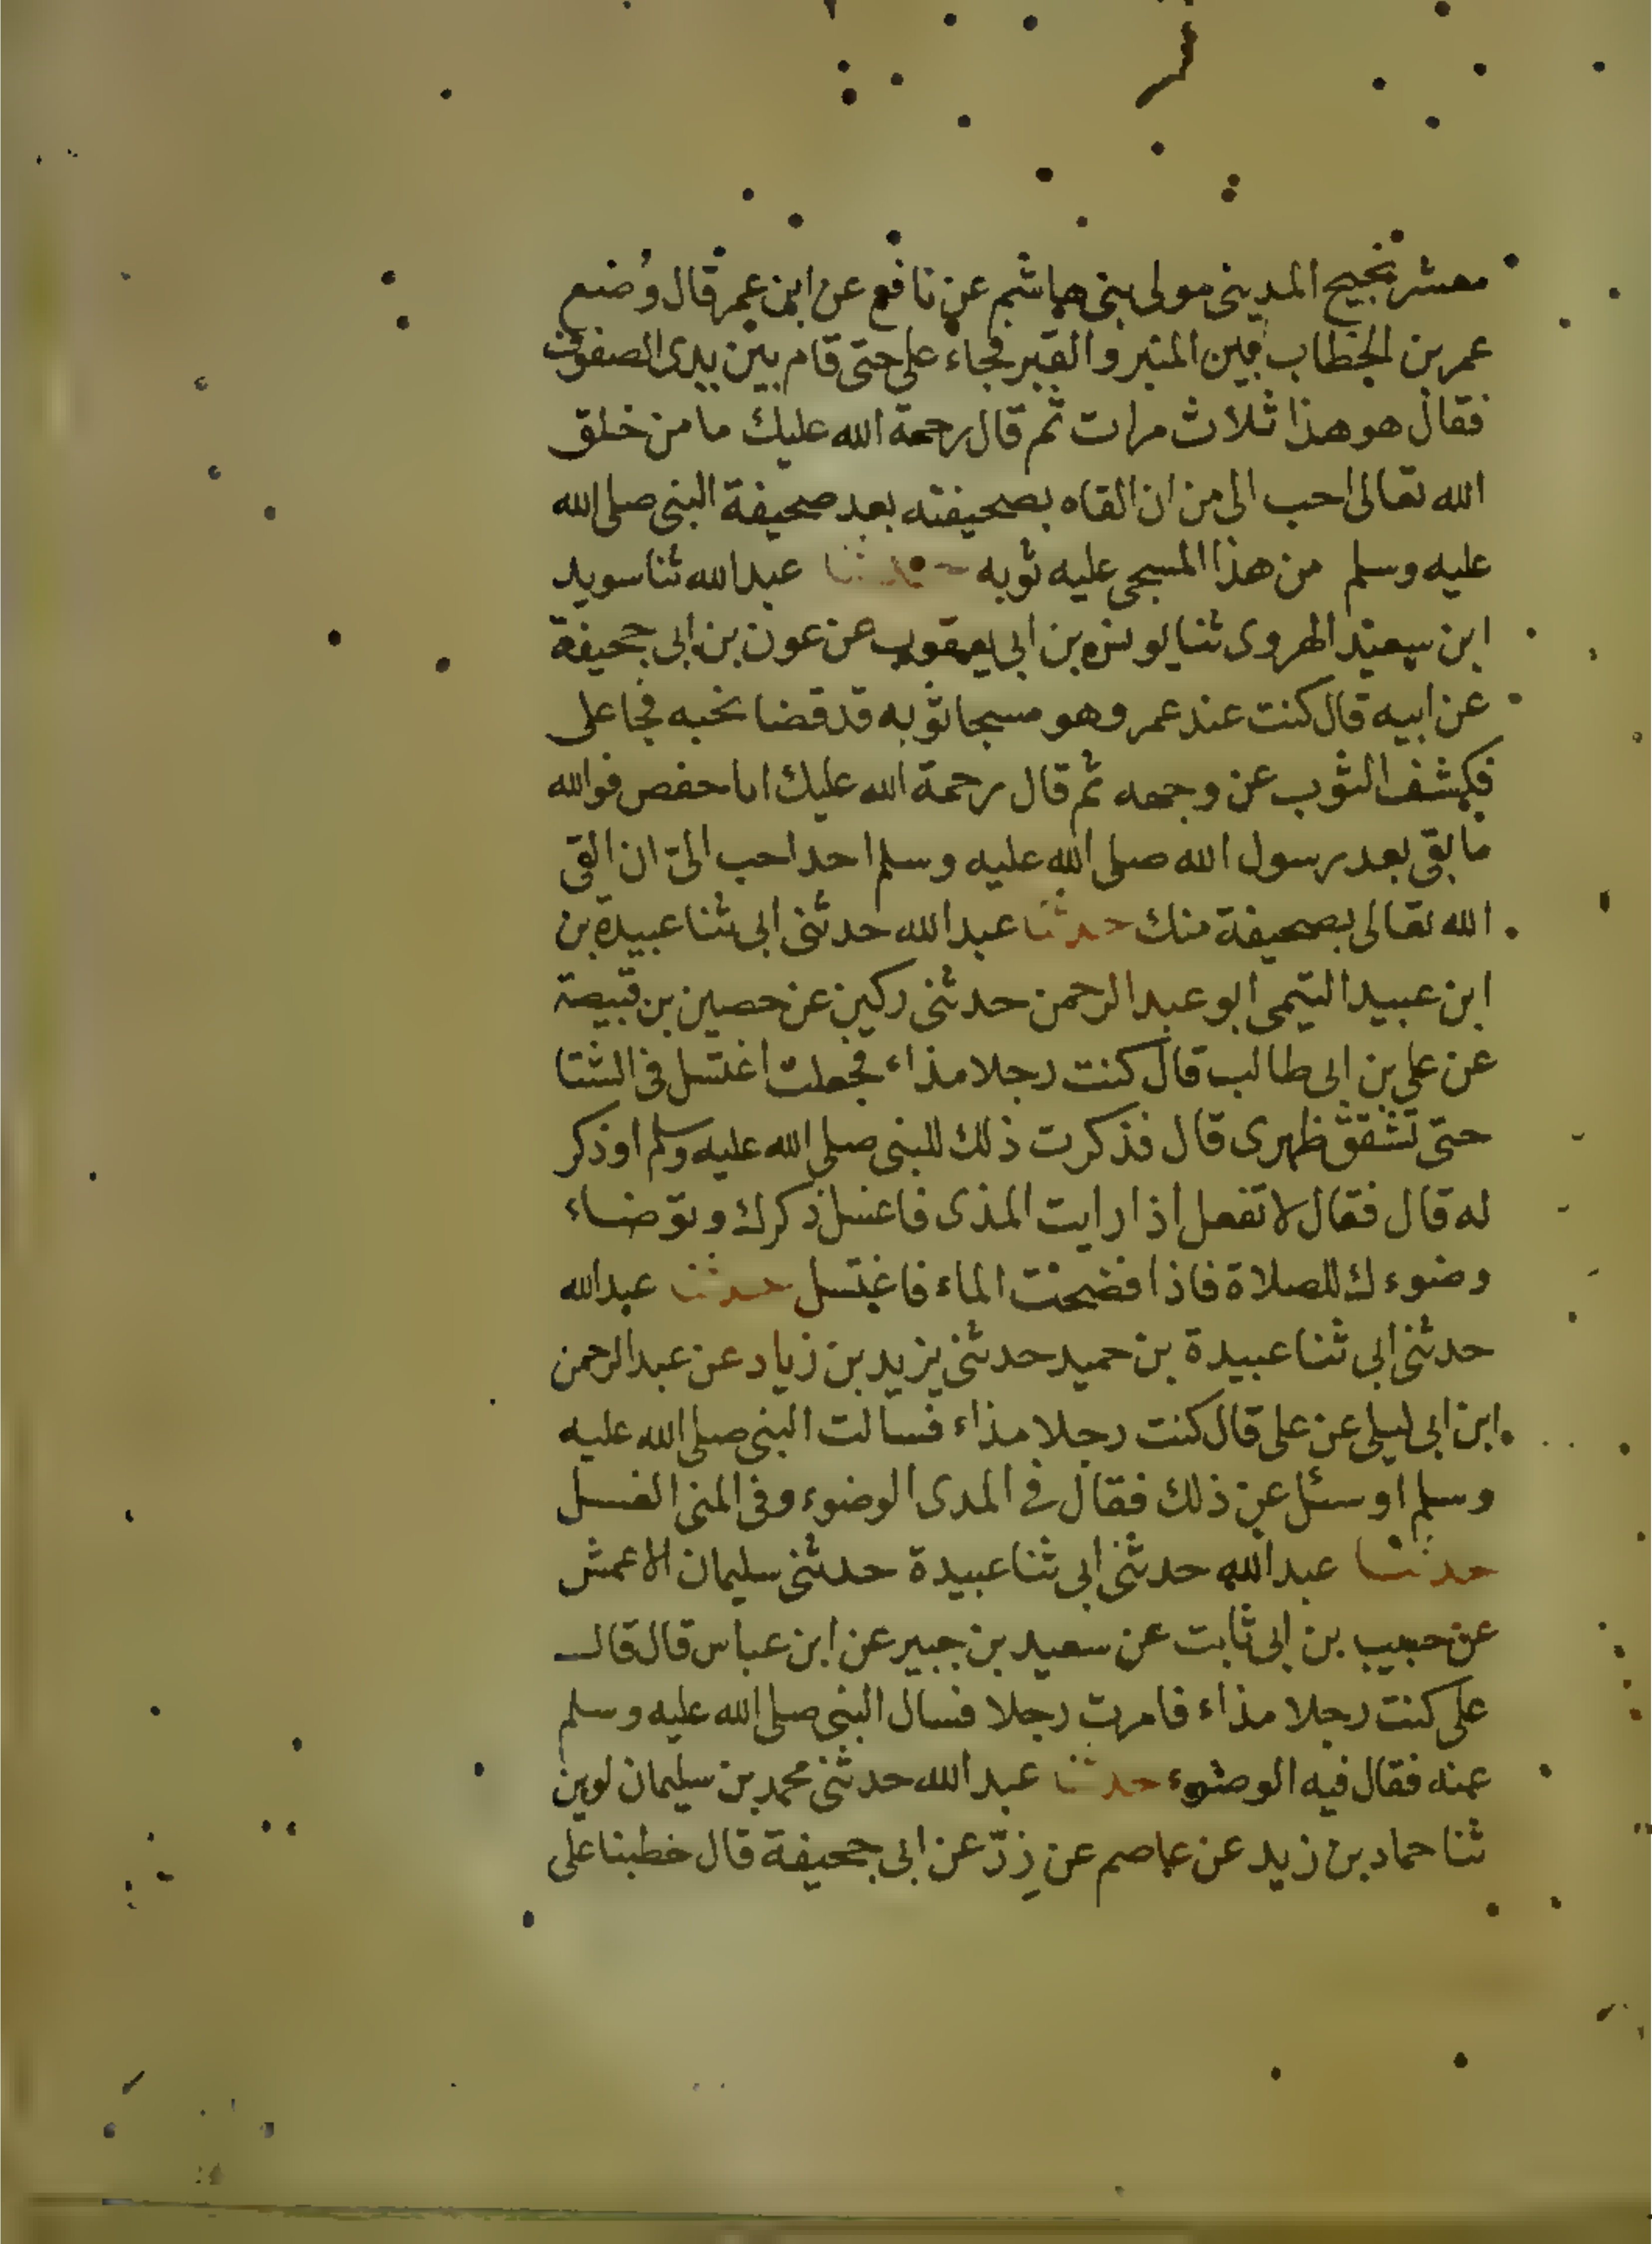 معشر نجيح المديني مولى بني هاشم عن نافع عن ابن عمر قال وُضع
عمر بن الخطاب بين المنبر والقبر فجاء على حتى قام بين يدى الصفوف
فقال هو هذا ثلاث مرات ثم قال رحمة الله عليك ما من خلق
الله تعالى احب الى من ان القاه بصحيفته بعد صحيفة النبى صلى الله
عليه وسلم من هذا المسجى عليه ثوبه حدثنا عبد الله ثنا سويد
ابن سعيد الهروى ثنا يونس بن ابى يعقوب عن عون بن ابى جحيفة
عن ابيه قال كنت عند عمر وهو مسجا ثوبه قد قضا نحبه فجا على
فكشف الثوب عن وجهه ثم قال رحمة الله عليك ابا حفص فوالله
ما بقى بعد رسول الله صلى الله عليه وسلم احد احب الىّ ان القى
الله تعالى بصحيفة منك حدثنا عبد الله حدثنى ابى ثنا عبيدة بن
ابن عبيد التيمى ابو عبد الرحمن حدثنى ركين عن حصين بن قبيصة
عن على بن ابى طالب قال كنت رجلا مذاء فجعلت اغتسل فى الشتا
حتى تشقق ظهرى قال فذكرت ذلك للنبى صلى الله عليه وسلم او ذكر
له قال فقال لا تفعل اذا رايت المذى فاغسل ذكرك وتوضاء
وضوءك للصلاة فاذا فضخت الماء فاغتسل حدثنا عبد الله
حدثنى ابى ثنا عبيدة بن حميد حدثنى يزيد بن زياد عن عبد الرحمن
ابن ابى ليلى عن على قال كنت رجلا مذاء فسالت النبى صلى الله عليه
وسلم او سئل عن ذلك فقال فى المذى الوضوء وفى المنى الغسل
حدثنا عبد الله حدثنى ابى ثنا عبيدة حدثنى سليمان الاعمش
عن حبيب بن ابى ثابت عن سعيد بن جبير عن ابن عباس قال قال
على كنت رجلا مذاء فامرت رجلا فسال النبى صلى الله عليه وسلم
عنه فقال فيه الوضوء حدثنا عبد الله حدثنى محمد بن سليمان لوين
ثنا حماد بن زيد عن عاصم عن زِرّ عن ابى جحيفة قال خطبنا على